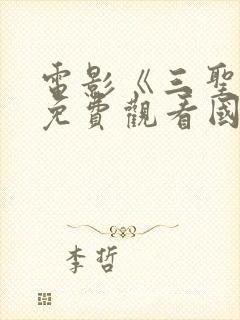 電影《三聖
免費觀看國
李哲